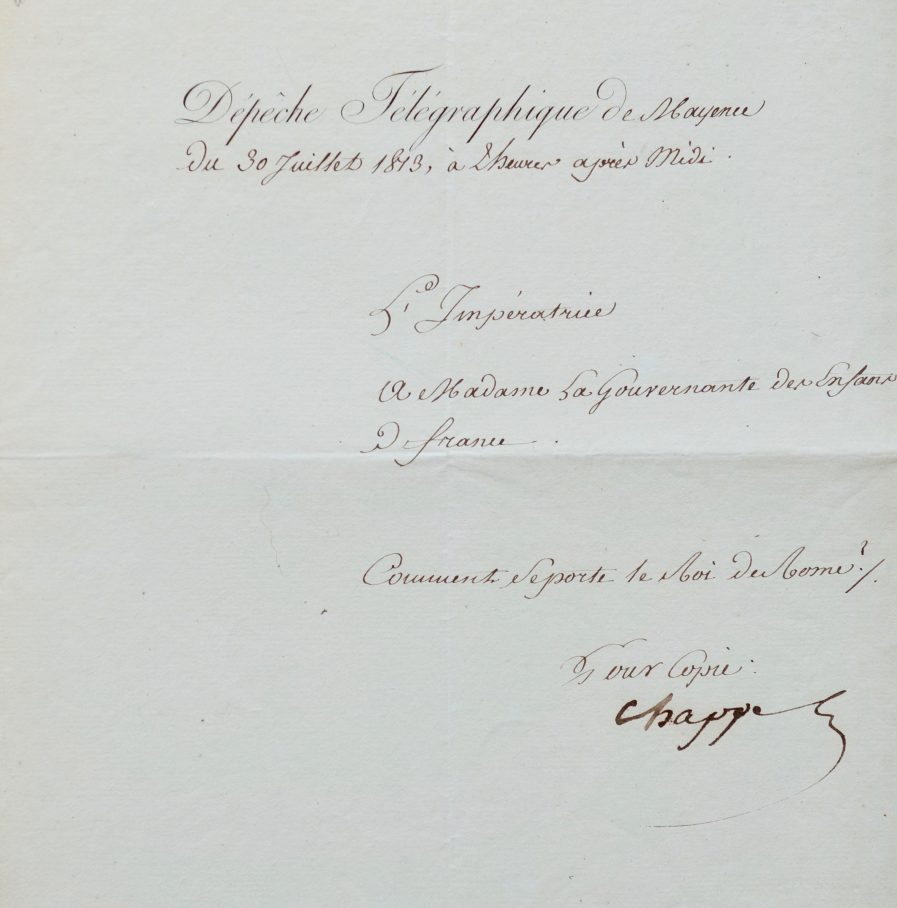 Dépêche Télégraphique de Mayence
du 30 Juillet 1813, à 2 heures après Midi.
L'Impératrice
A Madame La Gouvernante des Enfans
de france.
Comment se porte le Roi de Rome?/.
Pour Copie:
Chappe